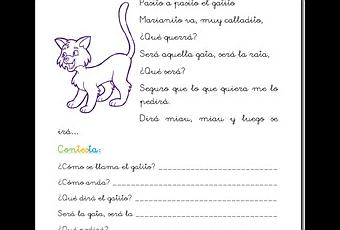 Pasito a pasito el gatito
Marianito va, muy calladito,
¿Qué querrá?
Será aquella gata, será la rata,
¿Qué será?
Seguro que lo que quiera me lo
pedirá.
Dirá miau, miau y luego se
irá...
Contesta:
¿Cómo se llama el gatito?
¿Cómo anda?
¿Qué dirá el gatito?
Será la gata, será la
¿Qué pedirá?